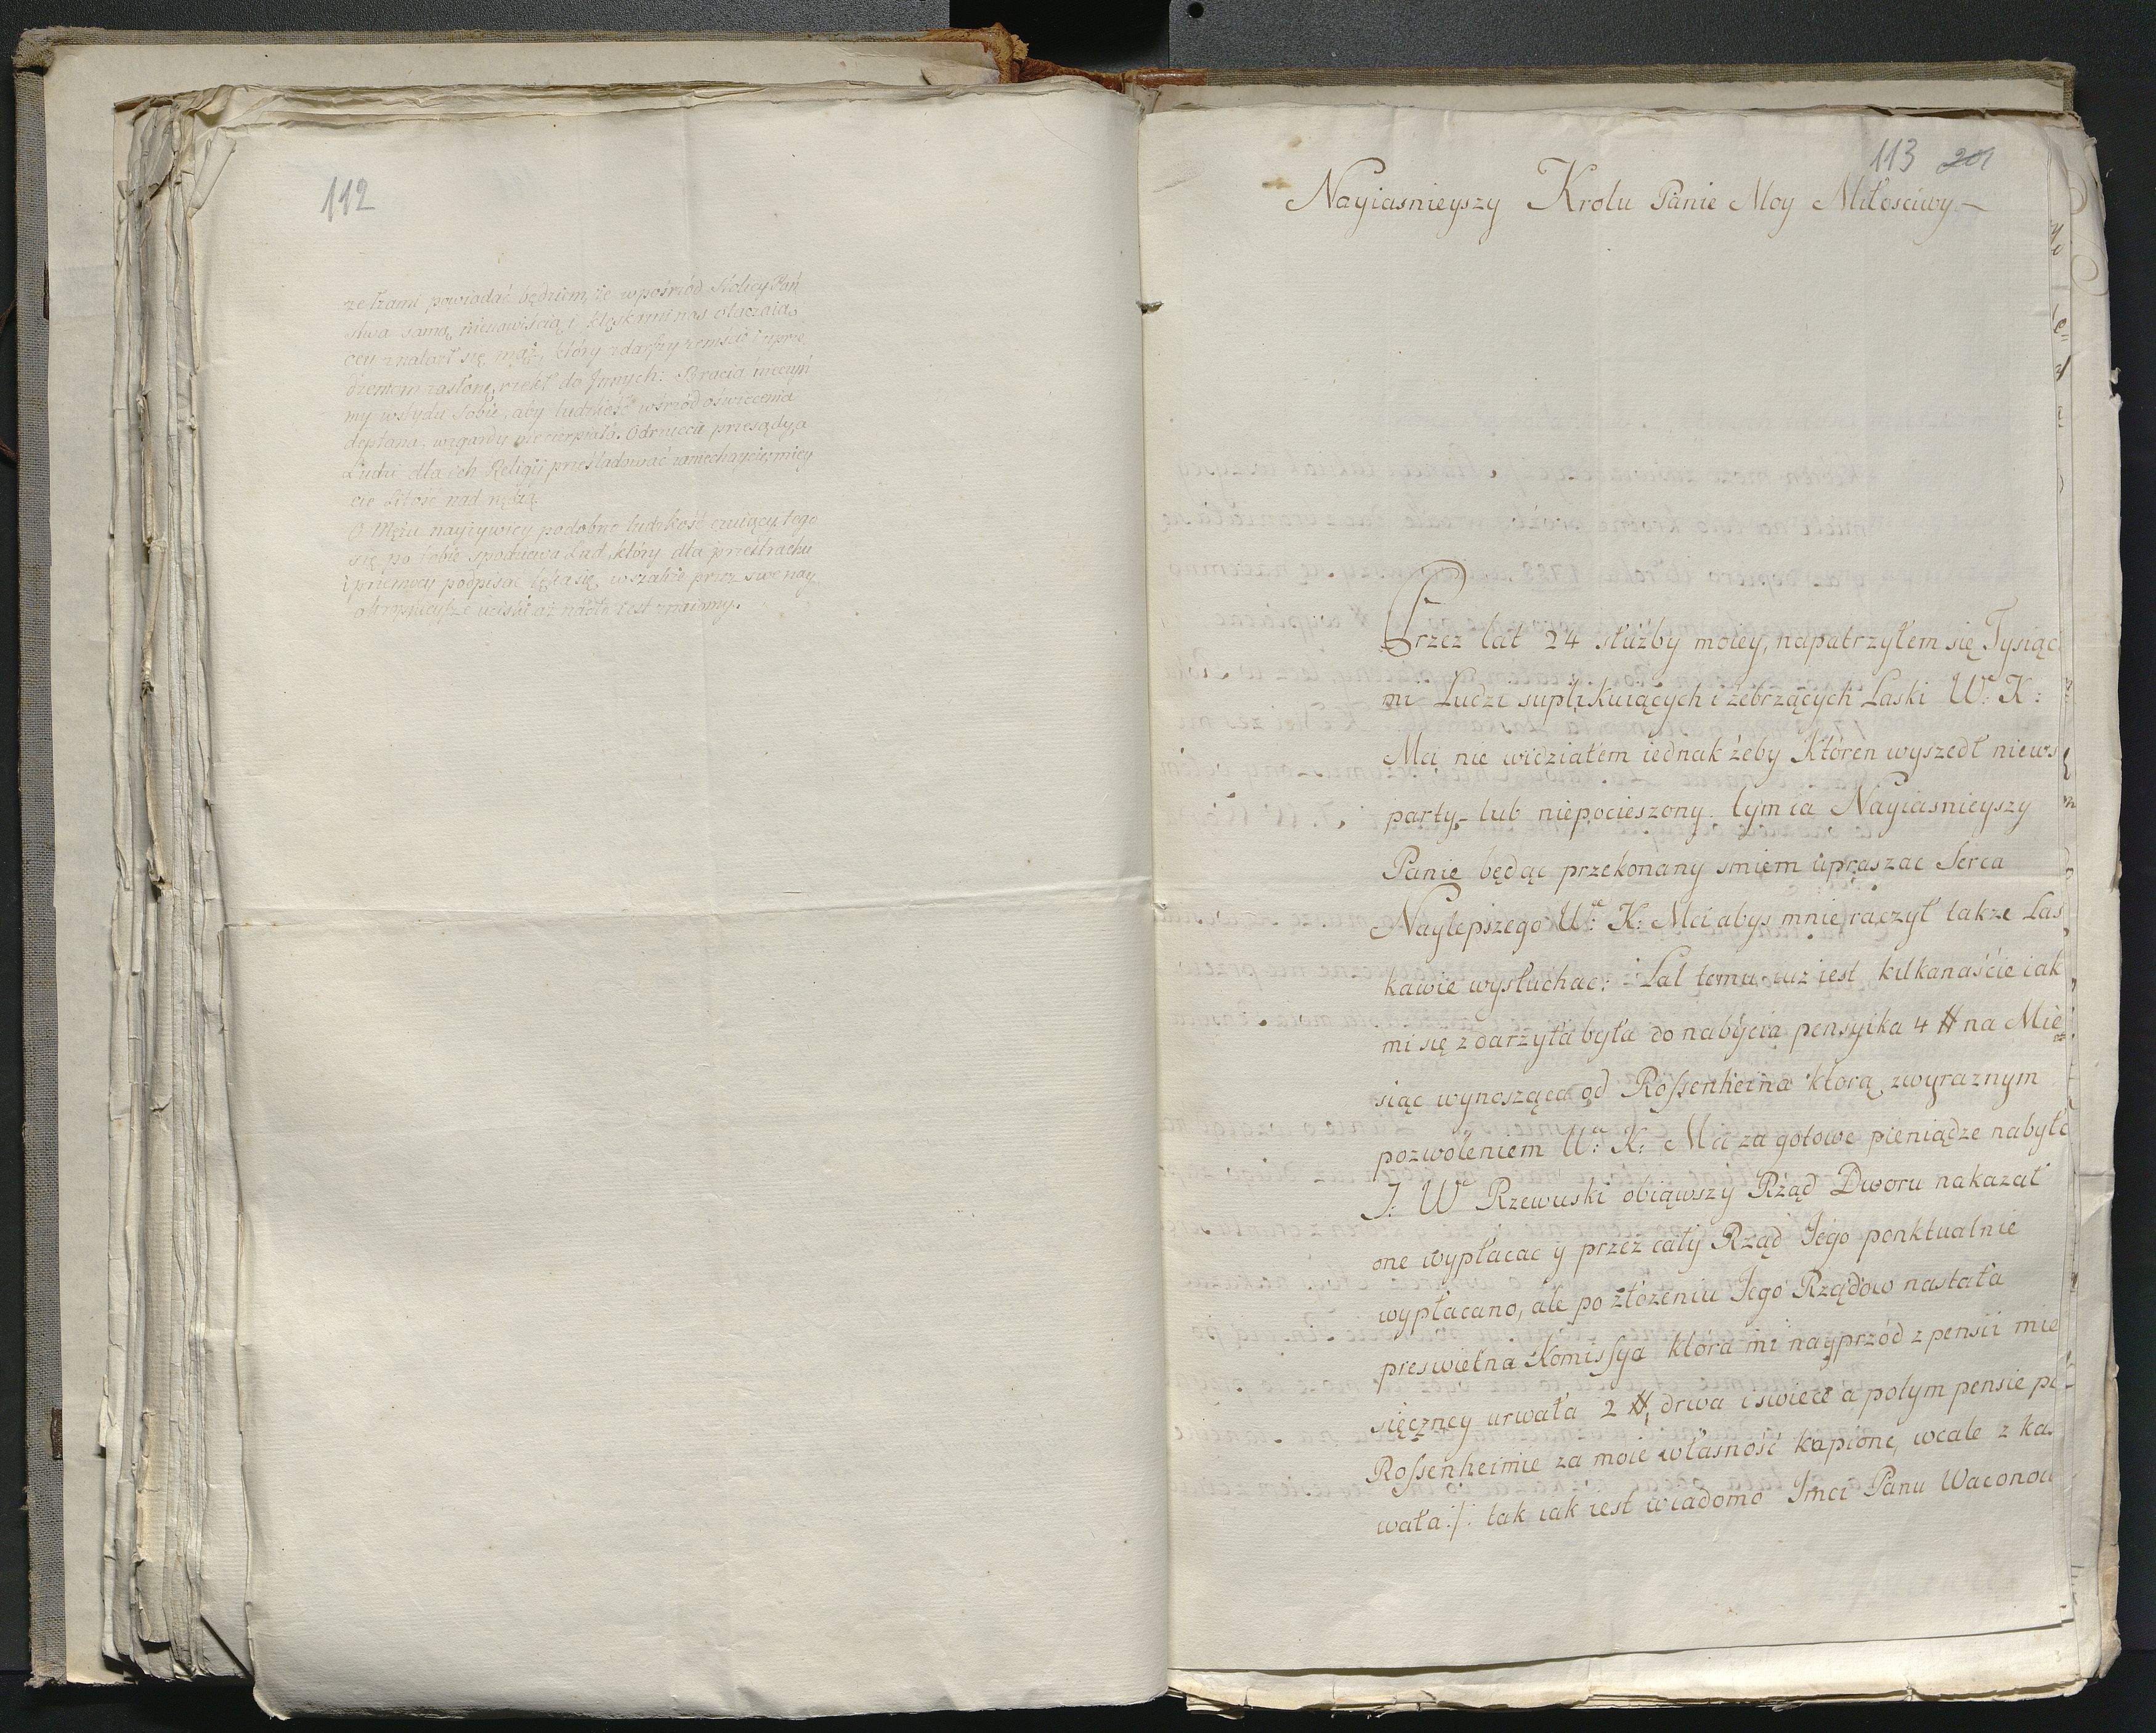 112
ze łzami powiadać będziem, że wpośrzód Stolicy Pań
stwa samą nienawiścią i klęskami nas otaczaią
cey znalazł się mąż, który zdarłszy zemście i uprze
dzeniom zasłonę, rzekł do Innych: Bracia nieczyń
my wstydu sobie, aby ludzkość wśrzód oświecenia
deptana, wzgardy nie cierpiała. Odrzuccie przesądy, a
Ludzi dla ich Religii prześladować zaniechaycie, miey
cie litość nad nędzą.
O Mężu nayżywiey podobno ludzkość czuiący, tego
się po tobie spodziewa Lud, który dla przestrachu
i przemocy podpisać lęka się, wszakże przez swe nay
okropnieysze uciski aż nadto iest znaiomy.
113 201
Nayiasnieyszy Krolu Panie Moy Miłosciwy
Przez lat 24 służby moiey, napatrzyłem się Tysiąca
mi Ludzi suplikuiących i żebrzących Laski W. K:
Mci nie widziałem iednak żeby ktoren wyszedł niews
party lub niepocieszony. tym ia Nayiasnieyszy
Panie będąc przekonany smiem upraszac Serca
Naylepszego W: K: Mci abys mnie raczył takze Las
kawie wysłuchac: Lat temu iuz iest kilkanaście iak
mi się zdarzyła była do nabycia pensyika 4 # na Mie
siąc wynosząca od Rossenheima ktorą zwyraznym
pozwoleniem W: K: Mci za gotowe pieniądze nabyłem
J: W Rzewuski obiąwszy Rząd Dworu nakazał
one wypłacac y przez cały Rząd Jego ponktualnie
wypłacano, ale po złożeniu Jego Rządow nastała
preswietna Komissya która mi nayprzód z pensii mie
sięczney urwała 2 #, drwa i swiece a potym pensie po
Rossenheimie za moie własność kupione, wcale z kas
wała :/: tak iak iest wiadomo Jmci Panu